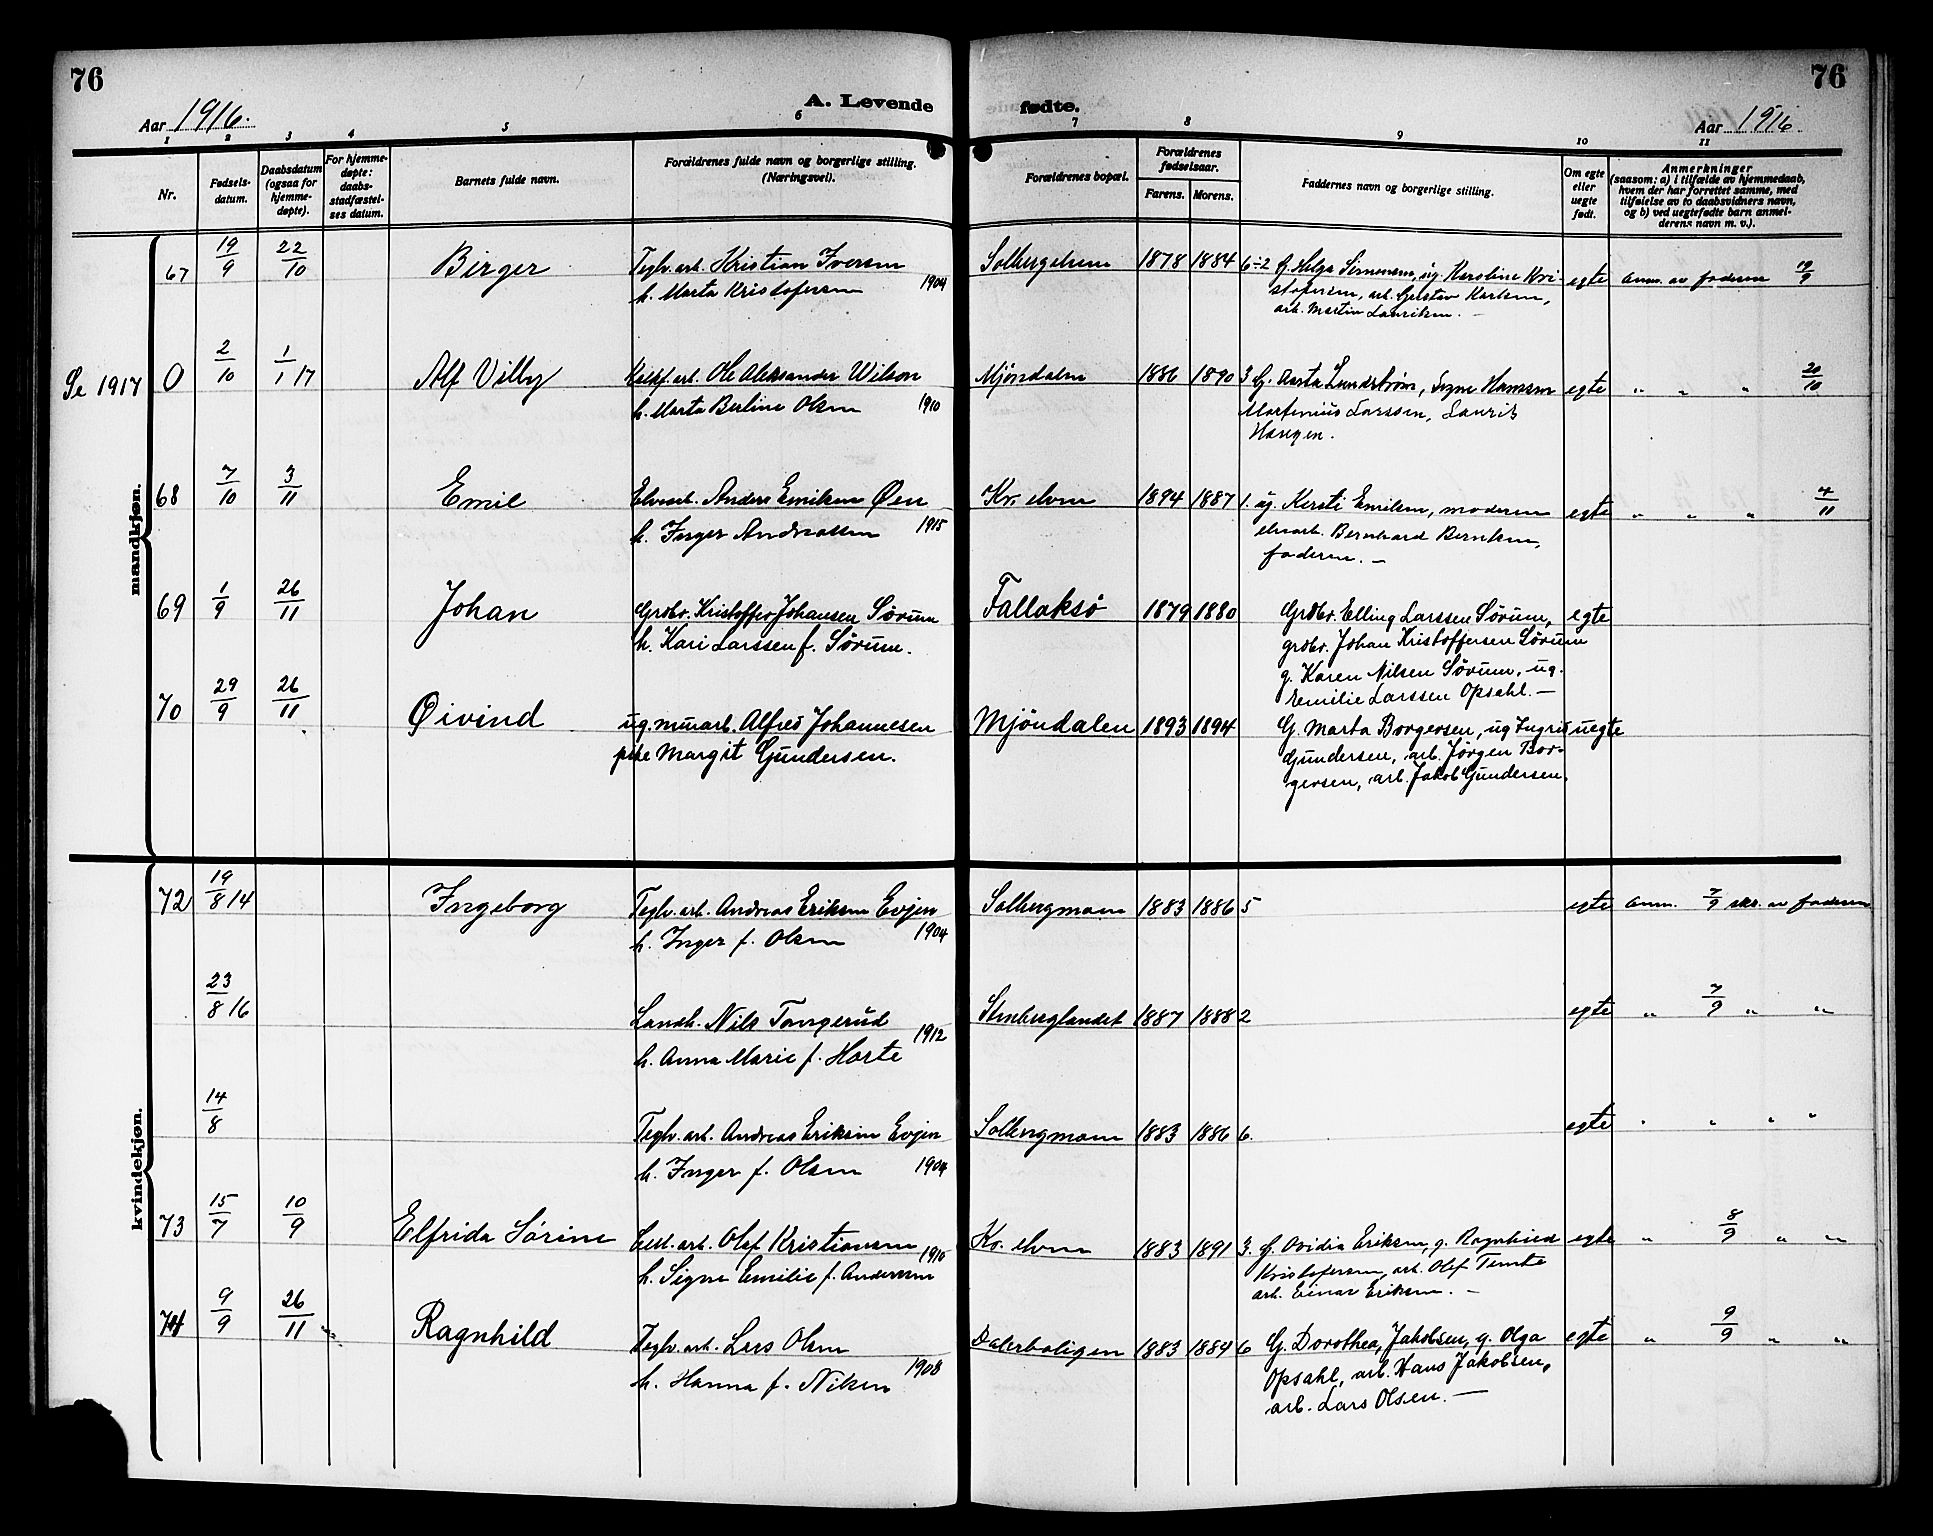 76
Aar 1916.
A. Levende
1 2 3 4 5 6
Nr.
Fødsels-
datum.
Daabsdatum
(ogsaa for
hjemme-
døpte).
For hjemme-
døpte:
daabs-
stadfæstel-
ses datum.
Barnets fulde navn.
Forældrenes fulde navn og borgerlige stilling.
(Næringsvei).
mandkjøn.
67 19/9 22/10 Birger Teglv. arb. Kristian Iversen
h. Marta Kristofersen 1904
Se 1917 0 2/10 1/1 17 Alf Villy arb. Ole Aleksander Wilson
h. Marta Berline Olsen 1910
68 7/10 3/11 Emil Elvearb. Anders Emilsen Øen
h. Inger Andreassen 1915
69 1/9 26/11 Johan Grdbr. Kristoffer Johansen Sørum
h. Kari Larssen f. Sørum.
70 29/9 26/11 Øivind ug. murarb. Alfred Johannesen
pike Margit Gundersen.
kvindekjøn.
72 19/8 14 Ingeborg Teglv. arb. Andreas Eriksen Evjen
h. Inger f. Olsen 1904
23/8 16 Landh. Nils Tangerud
h. Anna Marie f. Horte 1912
14/8 Teglv. arb. Andreas Eriksen Evjen
h. Inger f. Olsen 1904
73 15/7 10/9 Elfrida Sørine Cell. arb. Olaf Kristiansen
h. Signe Emilie f. Andersen 1910
74 9/9 26/11 Ragnhild Teglv. arb. Lars Olsen
h. Hanna f. Nilsen 1908
76
Aar 1916.
fødte.
7 8 9 10 11
Forældrenes bopæl.
Forældrenes
fødselsaar.
Farens. Morens.
Faddernes navn og borgerlige stilling.
Om egte
eller
uegte
født.
Anmerkninger
(saasom: a) i tilfælde av hjemmedaab,
hvem der har forrettet samme, med
tilføielse av to daabsvidners navn,
og b) ved uegtefødte barn anmel-
derens navn m. v.).
Solbergelven 1878 1884 6-2 G. Helga Simensen, ug. Karoline Kri- egte anm. av faderen 19/9
stofersen, arb. Gustav Karlsen,
arb. Martin Lauritsen. —
Mjøndalen 1886 1890 3 G. Aasta Lundstrøm, Signe Hansen egte „ „ „ 20/10
Martinius Larssen, Laurits
Haugen.
Kr. elven 1894 1887 1. ug. Kersti Emilsen, moderen egte „ „ „ 4/11
elvearb. Bernhard Berntsen,
faderen. —
Fallaksø 1879 1880 Grdbr. Elling Larssen Sørum, egte
grdbr. Johan Kristoffersen Sørum
g. Karen Nilsen Sørum, ug.
Emilie Larssen Opsahl. —
Mjöndalen 1893 1894 G. Marta Borgersen, ug Ingrid uegte
Gundersen, arb. Jørgen Bor-
gersen, arb. Jakob Gundersen.
Solbergmoen 1883 1886 5 egte anm. 7/9 skr. av faderen
Stenberglandet 1887 1888 2 egte „ 7/9 „ „
Solbergmoen 1883 1886 6. egte „ „ „ „
Kr. elven 1883 1891 3. G. Ovidia Eriksen, g. Ragnhild egte „ 8/9 „ „
Kristofersen, arb. Olaf Temte
arb. Einar Eriksen. —
Dalerboligen 1883 1884 6 G. Dorothea Jakobsen, g. Olga egte „ 9/9 „ „
Opsahl, arb. Hans Jakobsen,
arb. Lars Olsen. —